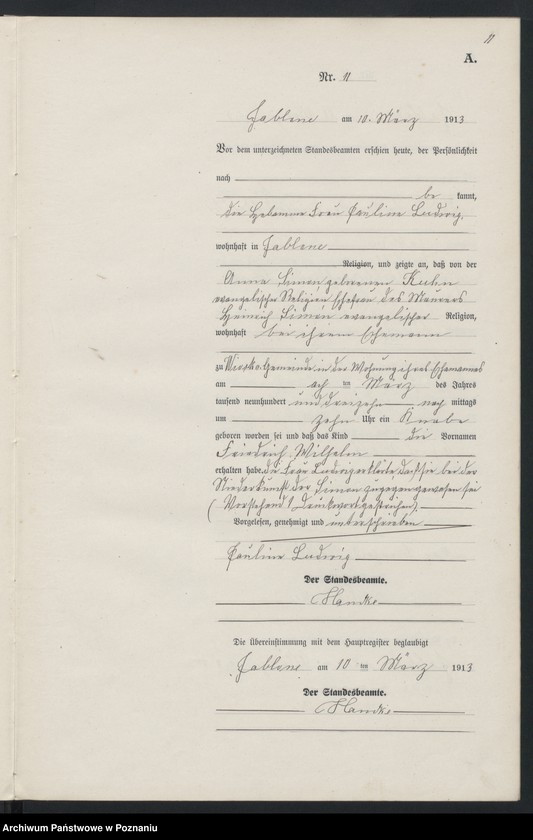 11
A.
Nr. 11
Jablone am 10. März 1913
Vor dem unterzeichneten Standesbeamten erschien heute, der Persönlichkeit
nach
be kannt,
die Hebamme Frau Pauline Ludwig,
wohnhaft in Jablone
Religion, und zeigte an, daß von der
Anna Simon geborenen Kuhn
evangelischer Religion Ehefrau des Maurers
Heinrich Simon evangelischer Religion,
wohnhaft bei ihrem Ehemann
zu Gemeinde in der Wohnung ihres Ehemannes
am acht im März des Jahres
tausend neunhundert und dreizehn nach mittags
um zehn Uhr ein Knabe
geboren worden sei und daß das Kind die Vornamen
Friedrich Wilhelm
erhalten habe. die Frau Ludwig erklärte daß sie bei der
Niederkunft der Simon zugegen gewesen sei
(Vorstehend 1 Druckwort gestrichen).
Vorgelesen, genehmigt und unterschrieben
Pauline Ludwig
Der Standesbeamte.
Handke
Die Übereinstimmung mit dem Hauptregister beglaubigt
Jablone am 10 ten März 1913
Der Standesbeamte.
Handke
Archiwum Państwowe w Poznaniu